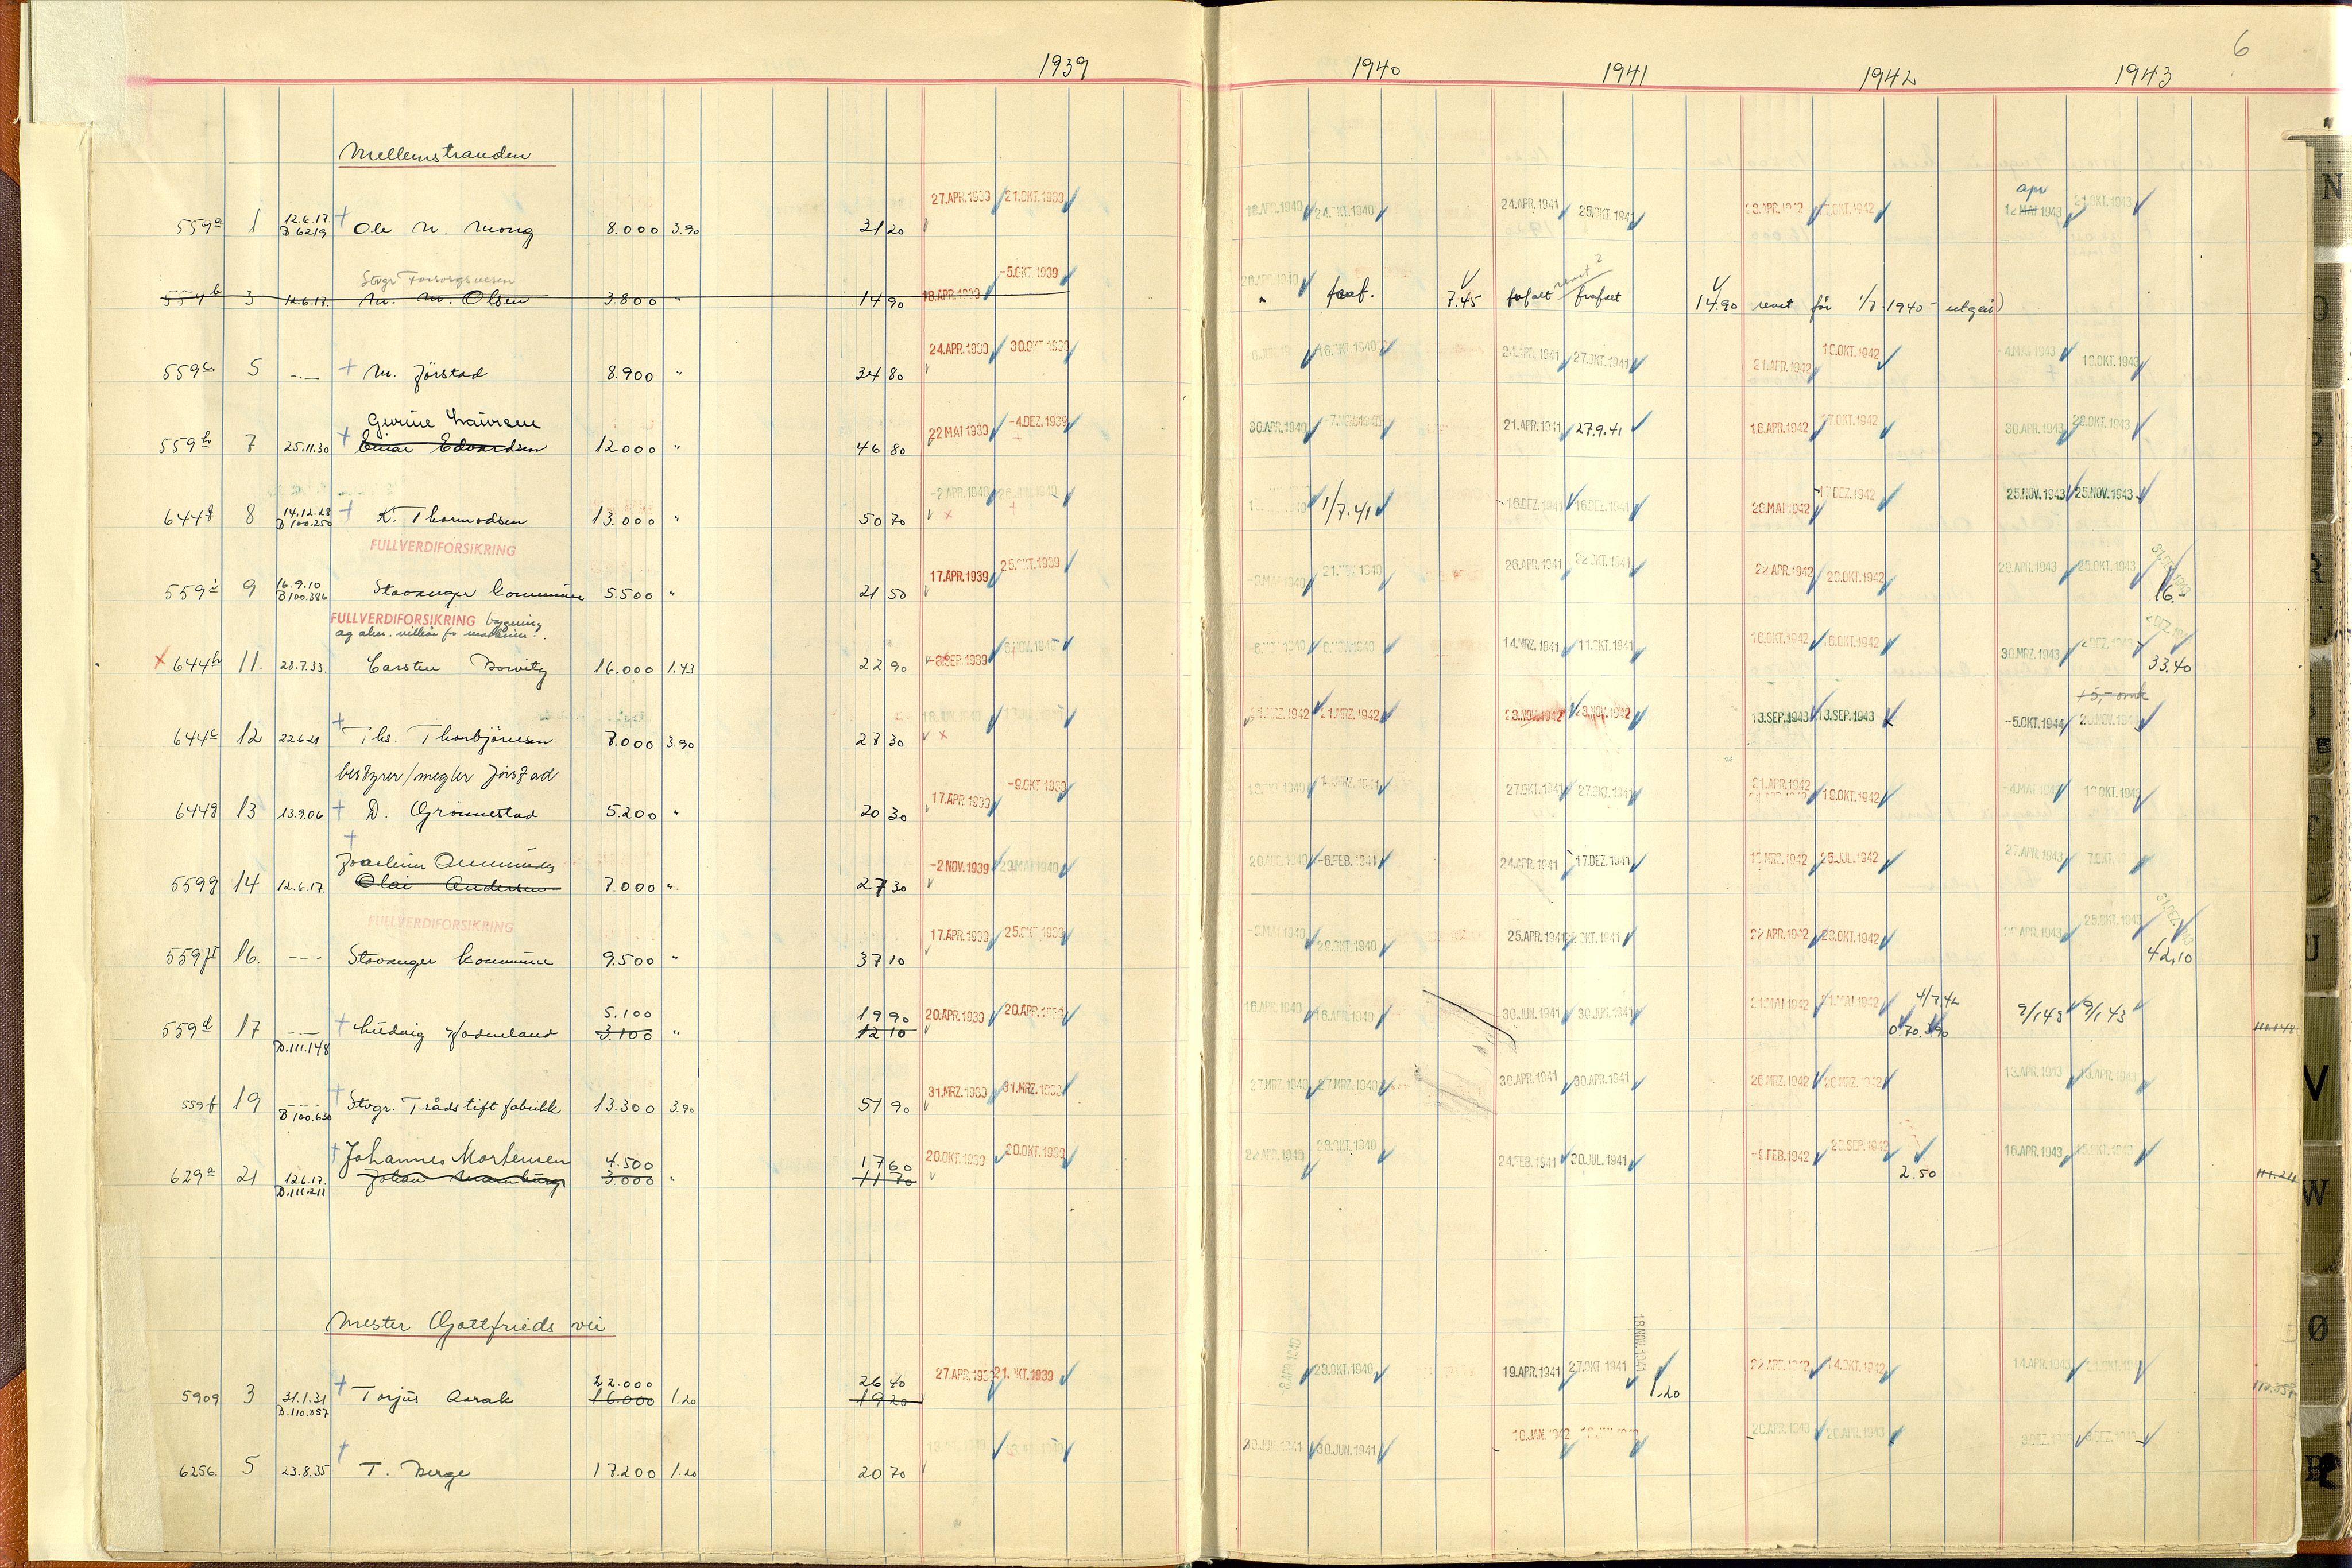 1939 1940 1941 1942 1943 6
Mellemstranden
27.APR.1939 21.OKT.1939 18.APR.1940 24.OKT.1940 24.APR.1941 25.OKT.1941 23.APR.1942 OKT.1942 apr 12 MAI 1943 21.OKT.1943
559a 1 12.6.17. B 6219 Ole N. Mong 8.000 3.90 31 20
Stvgr Forsorgsvesen -5.OKT.1939 26.APR.1940
559b 3 12.6.17. M. M. Olsen 3.800 " 14 90 18.APR.1939 " fraf. 7.45 frafalt revet? frafalt 14.90 revet før 1/7.1940 - utgår)
24.APR.1939 30.OKT 1939 16.OKT 1940 24.APR. 1941 27.OKT.1941 21.APR.1942 19.OKT.1942 -4.MAI 1943 19.OKT.1943
559c 5 -.- M. Jörstad 8.900 " 34 80
Gurine Lauritsen
22 MAI 1939 -4.DEZ.1939 30.APR.1940 -7.NOV.1940 21.APR.1941 27.9.41 18.APR.1942 27.OKT.1942 30.APR.1943 26.OKT.1943
559h 7 25.11.30 Einar Edvardsen 12.000 " 46 80
-2 APR.1940 1/7.41 16.DEZ.1941 16.DEZ.1941 26.MAI 1942 17 DEZ.1942 25.NOV.1943 25.NOV.1943
644f 8 14.12.28 B 100.250 K. Thormodsen 13.000 " 50 70
FULLVERDIFORSIKRING
17.APR.1939 25.OKT.1939 -3.MAI 1940 21.NOV 1940 26.APR.1941 22.OKT.1941 22 APR.1942 26.OKT.1942 29.APR.1943 25.OKT.1943
559i 9 16.9.10 B 100.386 Stavanger Kommune 5.500 " 21 50 16.-
FULLVERDIFORSIKRING bygning
og alm. vilkår for maskiner.
-8.SEP.1939 6.NOV.1940 6.NOV.1940 6.NOV.1940 14.MRZ.1941 11.OKT.1941 16.OKT.1942 16.OKT.1942 30.MRZ.1943 DEZ.1943
644h 11. 28.7.33. Carsten Borvitz 16.000 1.43 22 90 33.40
21.MRZ.1942 21.MRZ.1942 23.NOV.1942 23.NOV.1942 13.SEP.1943 13.SEP.1943 -5.OKT.1944
644c 12 22.6.21 Ths. Thorbjörnsen 7.000 3.90 27 30
bestyrer/megler Jørstad
17.APR.1939 -9.OKT 1939 27.OKT.1941 27.OKT.1941 21.APR.1942 19.OKT.1942 -4.MAI 1943 19 OKT.1943
644g 13 13.9.06 D. Grönnestad 5.200 " 20 30
Joachim Aumunds
-2 NOV.1939 29.MAI 1940 -6.FEB.1941 24.APR.1941 17.DEZ.1941 MRZ.1942 25.JUL.1942 27.APR.1943
559g 14 12.6.17. Olai Andersen 7.000 " 27 30
FULLVERDIFORSIKRING
17.APR.1939 25.OKT 1939 -3.MAI 1940 26.OKT.1940 25.APR.1941 OKT.1941 22 APR.1942 26.OKT.1942 APR.1943 25.OKT.1943
559j 16. --- Stavanger Kommune 9.500 " 37 10 42,10
5.100 19 90 20.APR.1939 20.APR.1939 16.APR.1940 16.APR.1940 30.JUN.1941 30.JUN.1941 21.MAI 1942 21.MAI 1942 4/7.42 9/1 43 9/1 43
559d 17 -.- B.111.148 Ludvig Hodneland 3.100 " 12 10 0.70. 3.90 111.148
31.MRZ.1939 31.MRZ.1939 27.MRZ.1940 27.MRZ.1940 30.APR.1941 30.APR.1941 26.MRZ.1942 26.MRZ.1942 13.APR.1943 13.APR.1943
559f 19 --- B 100.630 Stvgr. Trådstiftfabrikk 13.300 3.90 51 90
Johannes Mortensen 4.500 17 60 20.OKT.1939 20.OKT.1939 22 APR.1940 28.OKT.1940 24.FEB.1941 30.JUL.1941 -9.FEB.1942 26.SEP.1942 16.APR.1943 15.OKT.1943
629a 21 12.6.17. B.111.211 Johan 3.000 " 11 70 2.50
Mester Gottfrieds vei
22.000 26 40 27.APR.1939 21.OKT.1939 8.APR.1940 28.OKT.1940 19.APR.1941 27.OKT 1941 18.NOV.1941 22 APR.1942 14.OKT.1942 14.APR.1943
5909 3 31.1.31 B.110.357 Torjus Aarak 16.000 1.20 19 20 1.20 110.357
30.JUN.1941 30.JUN.1941 10.JAN.1942 20.APR.1943 20.APR.1943
6256. 5 23.8.35 T. Berge 17.200 1.20 20 70
N
O
R
U
V
W
Ø